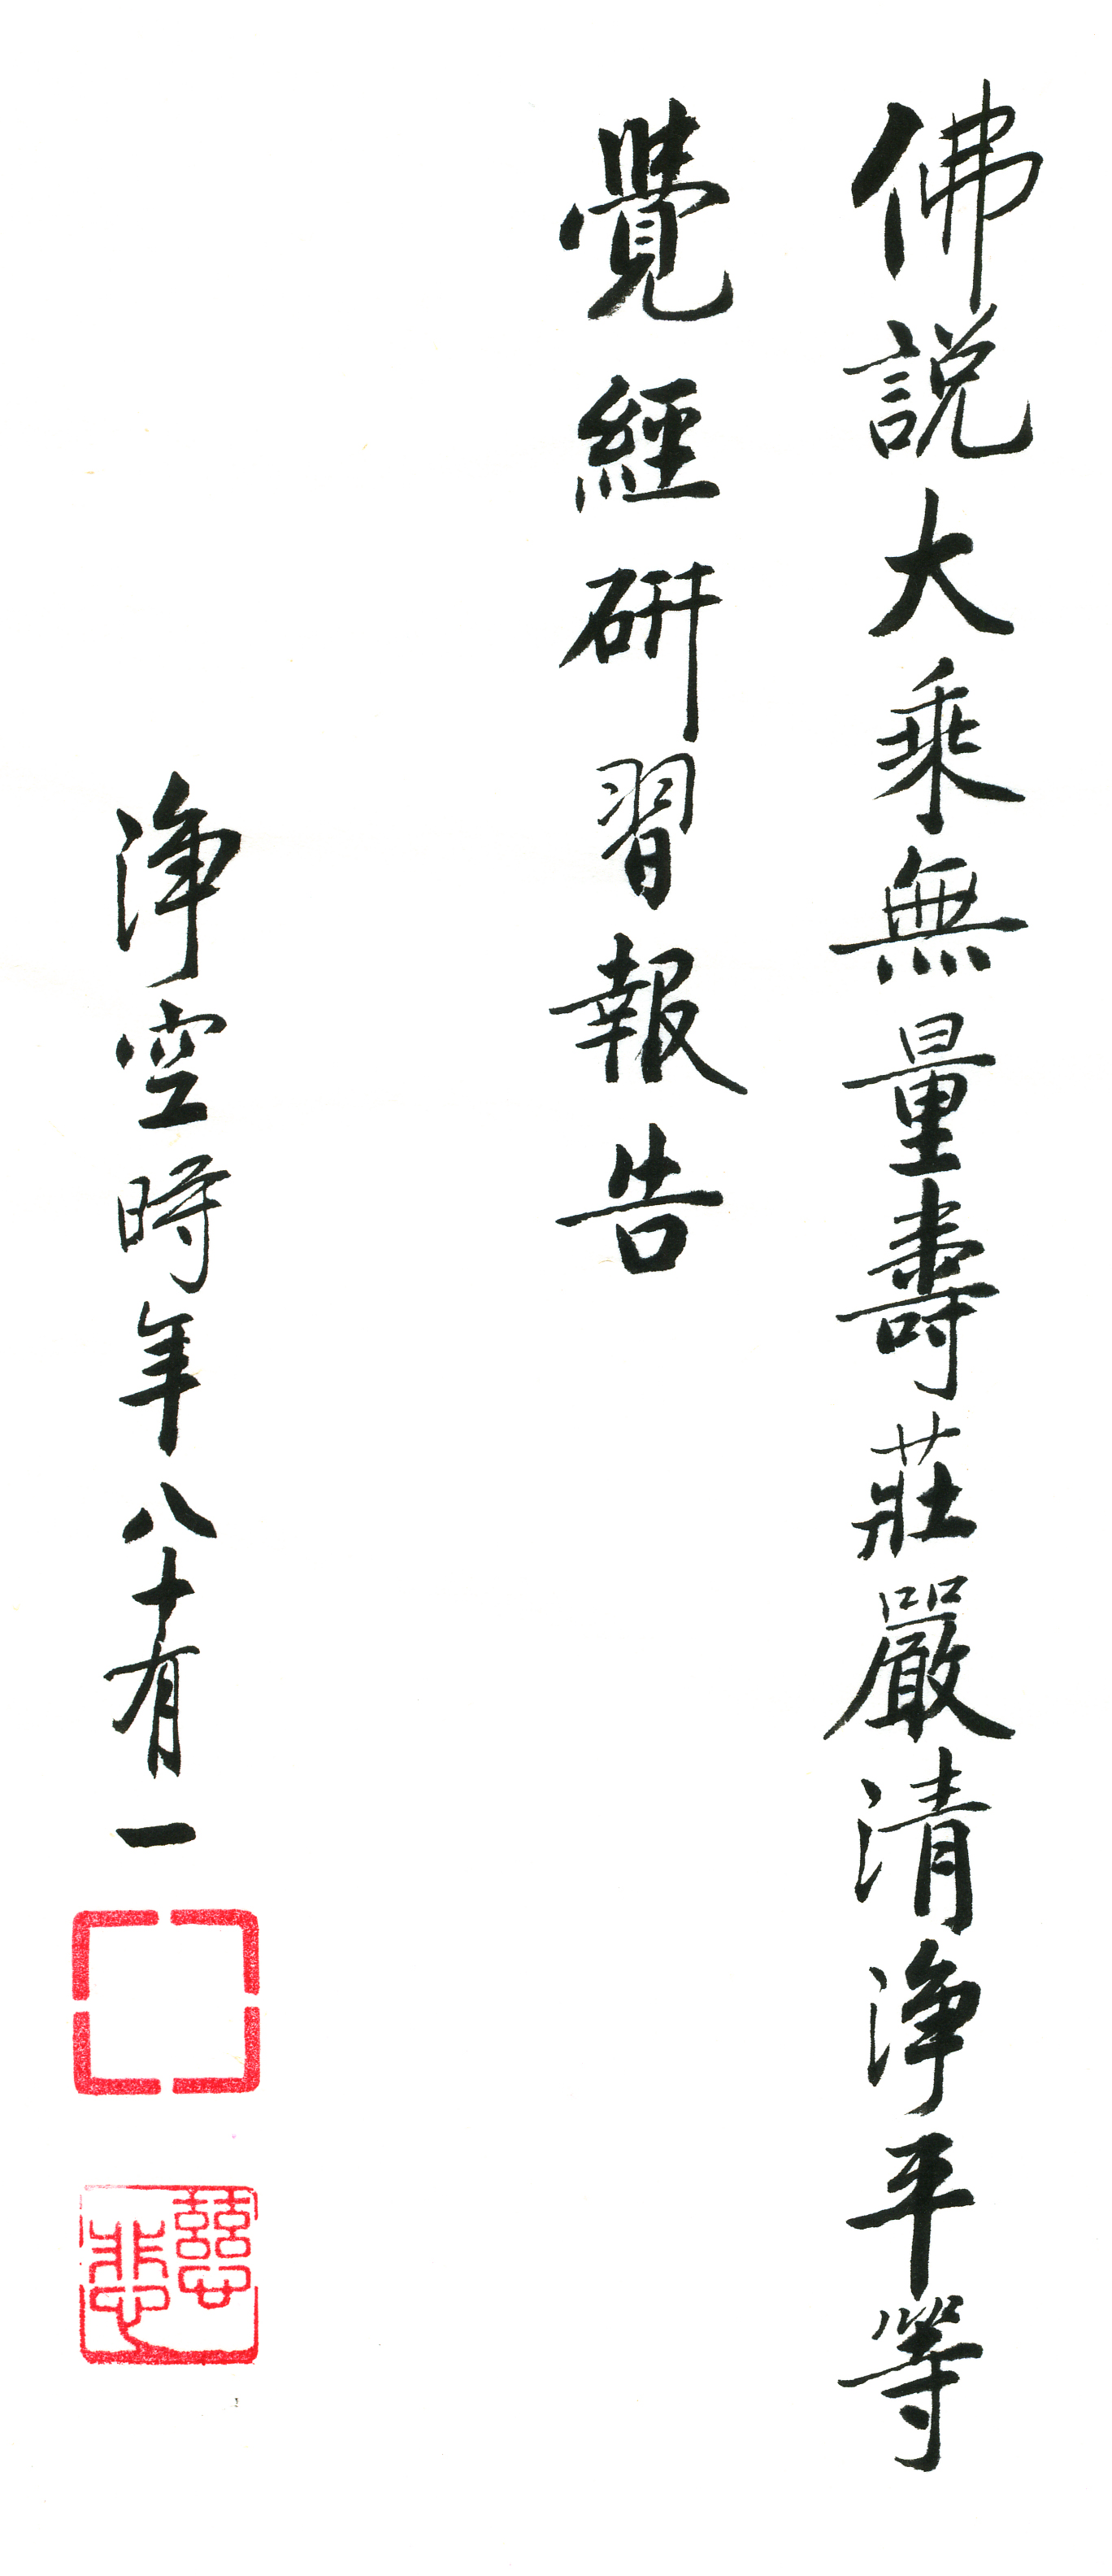 佛説大乘無量壽莊嚴清淨平等
覺經研習報告
淨空時年八十有一
慈悲